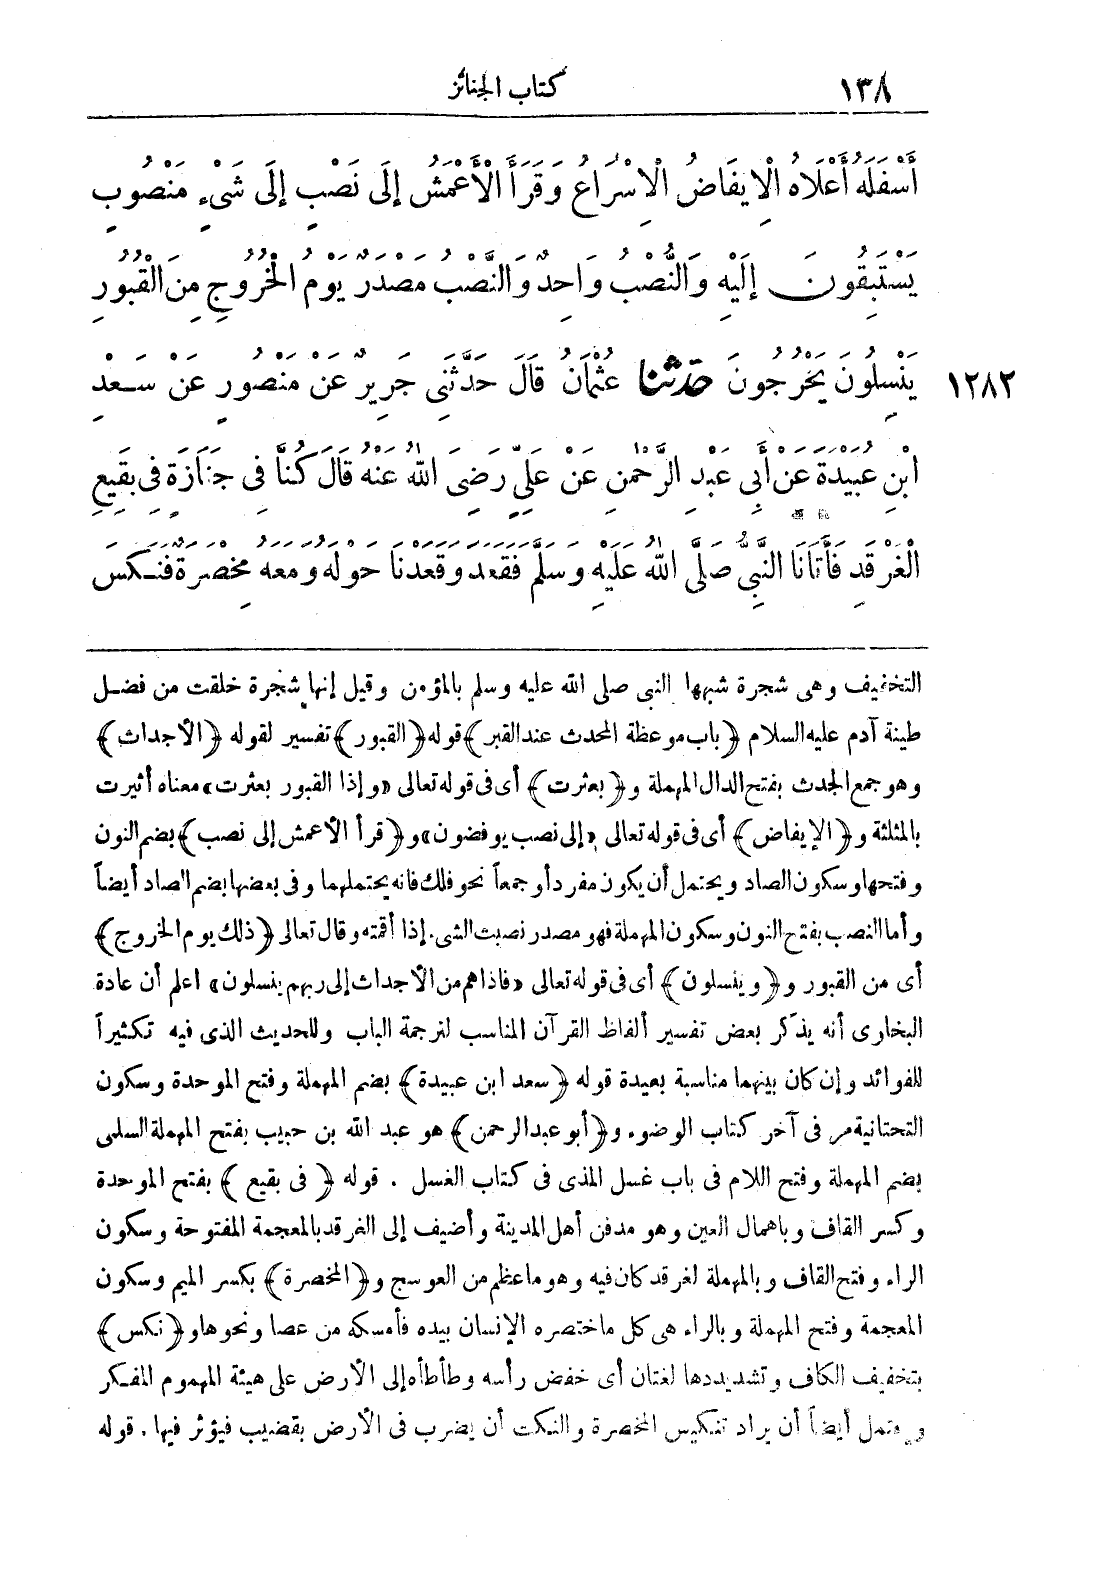 ١٣٨ كتاب الجنائز
أَسْفَلَهُ أَعْلَاهُ الْإِيفَاضُ الْإِسْرَاعُ وَقَرَأَ الْأَعْمَشُ إِلَى نَصْبٍ إِلَى شَىْءٍ مَنْصُوبٍ
يَسْتَبِقُونَ إِلَيْهِ وَالنُّصْبُ وَاحِدٌ وَالنَّصْبُ مَصْدَرٌ يَوْمُ الْخُرُوجِ مِنَ الْقُبُورِ
١٢٨٢ يَنْسِلُونَ يَخْرُجُونَ حَدَّثَنَا عُثْمَانُ قَالَ حَدَّثَنِى جَرِيرٌ عَنْ مَنْصُورٍ عَنْ سَعْدِ
ابْنِ عُبَيْدَةَ عَنْ أَبِى عَبْدِ الرَّحْمٰنِ عَنْ عَلِىٍّ رَضِىَ اللهُ عَنْهُ قَالَ كُنَّا فِى جَنَازَةٍ فِى بَقِيعِ
الْغَرْقَدِ فَأَتَانَا النَّبِىُّ صَلَّى اللهُ عَلَيْهِ وَسَلَّمَ فَقَعَدَ وَقَعَدْنَا حَوْلَهُ وَمَعَهُ مِخْصَرَةٌ فَنَكَسَ
التخفيف وهى شجرة شبهها النبى صلى الله عليه وسلم بالمؤمن وقيل إنها شجرة خلقت من فضل
طينة آدم عليه السلام ﴿باب موعظة المحدث عند القبر﴾ قوله ﴿القبور﴾ تفسير لقوله ﴿الأجداث﴾
وهو جمع الجدث بفتح الدال المهملة و﴿بعثرت﴾ أى فى قوله تعالى «وإذا القبور بعثرت» معناه أثيرت
بالمثلثة و﴿الإيفاض﴾ أى فى قوله تعالى «إلى نصب يوفضون» و﴿قرأ الأعمش إلى نصب﴾ بضم النون
وفتحها وسكون الصاد ويحتمل أن يكون مفرداً وجمعاً نحو فلك فانه يحتملهما وفى بعضها بضم الصاد أيضاً
وأما النصب بفتح النون وسكون المهملة فهو مصدر نصبت الشىء إذا أقمته وقال تعالى ﴿ذلك يوم الخروج﴾
أى من القبور و﴿وينسلون﴾ أى فى قوله تعالى «فاذا هم من الأجداث إلى ربهم ينسلون» اعلم أن عادة
البخارى أنه يذكر بعض تفسير ألفاظ القرآن المناسب لترجمة الباب وللحديث الذى فيه تكثيراً
للفوائد وإن كان بينهما مناسبة بعيدة قوله ﴿سعد ابن عبيدة﴾ بضم المهملة وفتح الموحدة وسكون
التحتانية مر فى آخر كتاب الوضوء و﴿أبو عبد الرحمن﴾ هو عبد الله بن حبيب بفتح المهملة السلمى
بضم المهملة وفتح اللام فى باب غسل المذى فى كتاب الغسل . قوله ﴿ فى بقيع ﴾ بفتح الموحدة
وكسر القاف وباهمال العين وهو مدفن أهل المدينة وأضيف إلى الغرقد بالمعجمة المفتوحة وسكون
الراء وفتح القاف وبالمهملة لغرقد كان فيه وهو ما عظم من العوسج و﴿المخصرة﴾ بكسر الميم وسكون
المعجمة وفتح المهملة وبالراء هى كل ما اختصره الإنسان بيده فأمسكه من عصا ونحوها و﴿نكس﴾
بتخفيف الكاف وتشديدها لغتان أى خفض رأسه وطأطأه إلى الأرض على هيئة المهموم المفكر
ويحتمل أيضاً أن يراد تنكيس المخصرة والنكت أن يضرب فى الأرض بقضيب فيؤثر فيها . قوله